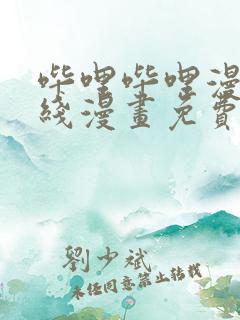 哔哩哔哩漫
线漫畫免費
劉少斌
未任同意禁止转载